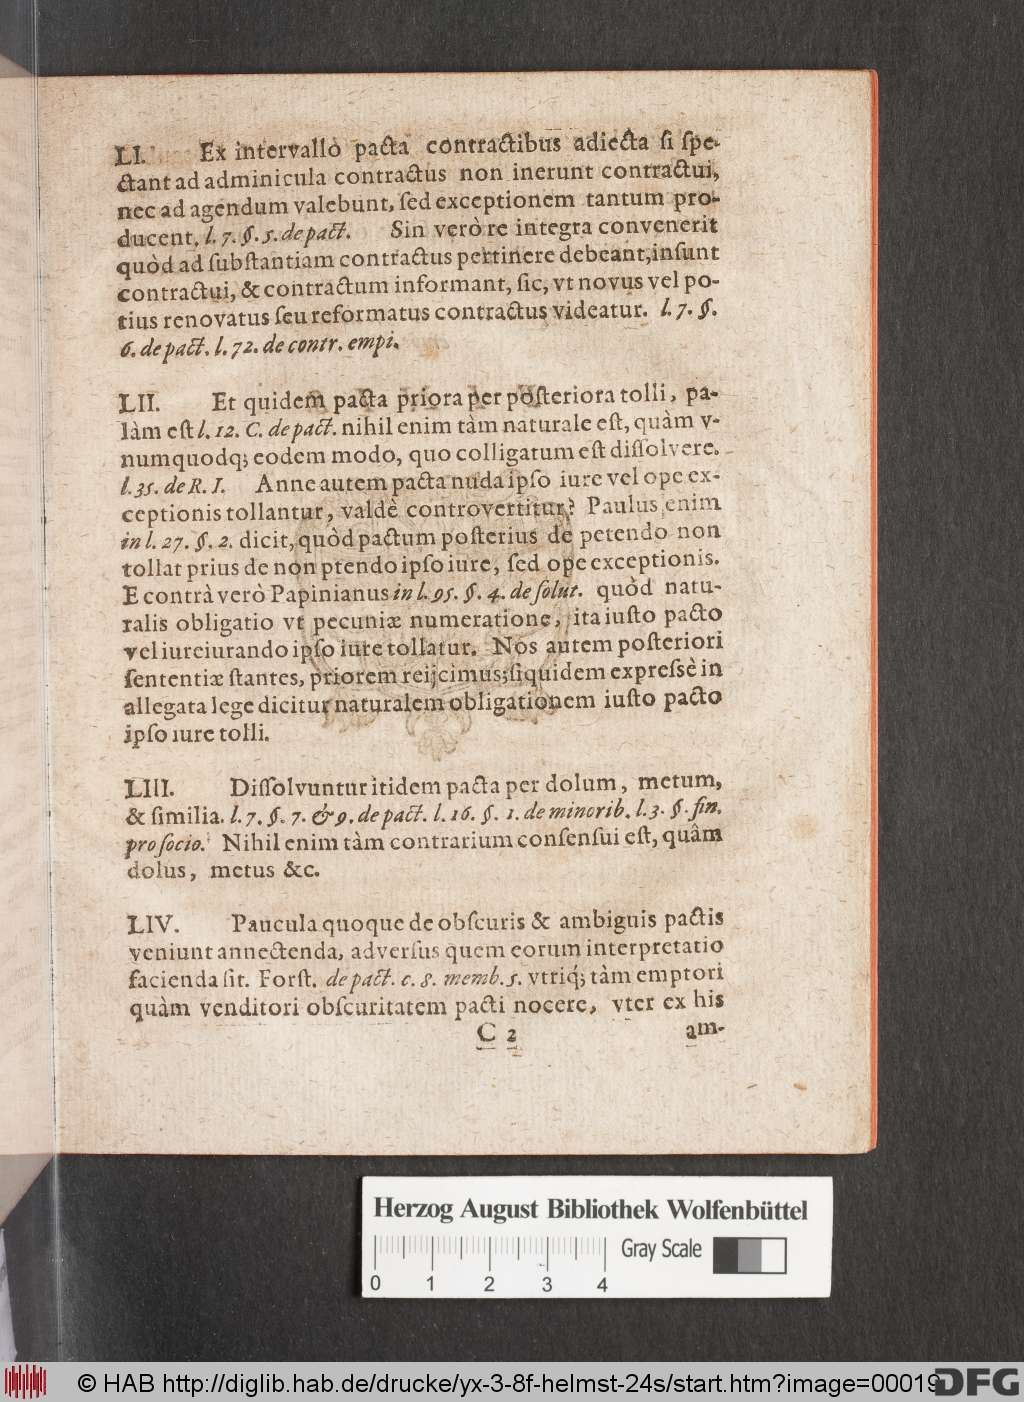 LI. Ex intervallò pacta contractibus adiectâ si spe-
ctant ad adminicula contractus non inerunt contractui,
nec ad agendum valebunt, sed exceptionem tantum pro-
ducent, l. 7. §. 5. de pact. Sin verò re integra convenerit
quòd ad substantiam contractus pertinere debeant, insunt
contractui, & contractum informant, sic, vt novus vel po-
tius renovatus seu reformatus contractus videatur. l. 7. §.
6. de pact. l. 72. de contr. empi.
LII. Et quidem pacta priora per posteriora tolli, pa-
làm est l. 12. C. de pact. nihil enim tàm naturale est, quàm v-
numquodq; eodem modo, quo colligatum est dissolvere.
l. 35. de R. I. Anne autem pacta nuda ipso iure vel ope ex-
ceptionis tollantur, valdè controvertitur? Paulus enim
in l. 27. §. 2. dicit, quòd pactum posterius de petendo non
tollat prius de non ptendo ipso iure, sed ope exceptionis.
E contrà verò Papinianus in l. 95. §. 4. de solut. quòd natu-
ralis obligatio vt pecuniæ numeratione, ita iusto pacto
vel iureiurando ipso iure tollatur. Nos autem posteriori
sententiæ stantes, priorem reijcimus; siquidem expressè in
allegata lege dicitur naturalem obligationem iusto pacto
ipso iure tolli.
LIII. Dissolvuntur itidem pacta per dolum, metum,
& similia. l. 7. §. 7. & 9. de pact. l. 16. §. 1. de minorib. l. 3. §. fin.
pro socio. Nihil enim tàm contrarium consensui est, quâm
dolus, metus &c.
LIV. Paucula quoque de obscuris & ambiguis pactis
veniunt annectenda, adversus quem eorum interpretatio
facienda sit. Forst. de pact. c. 8. memb. 5. vtriq́; tàm emptori
quàm venditori obscuritatem pacti nocere, vter ex his
C 2 am-
Herzog August Bibliothek Wolfenbüttel
Gray Scale
0 1 2 3 4
© HAB http://diglib.hab.de/drucke/yx-3-8f-helmst-24s/start.htm?image=00019
DFG